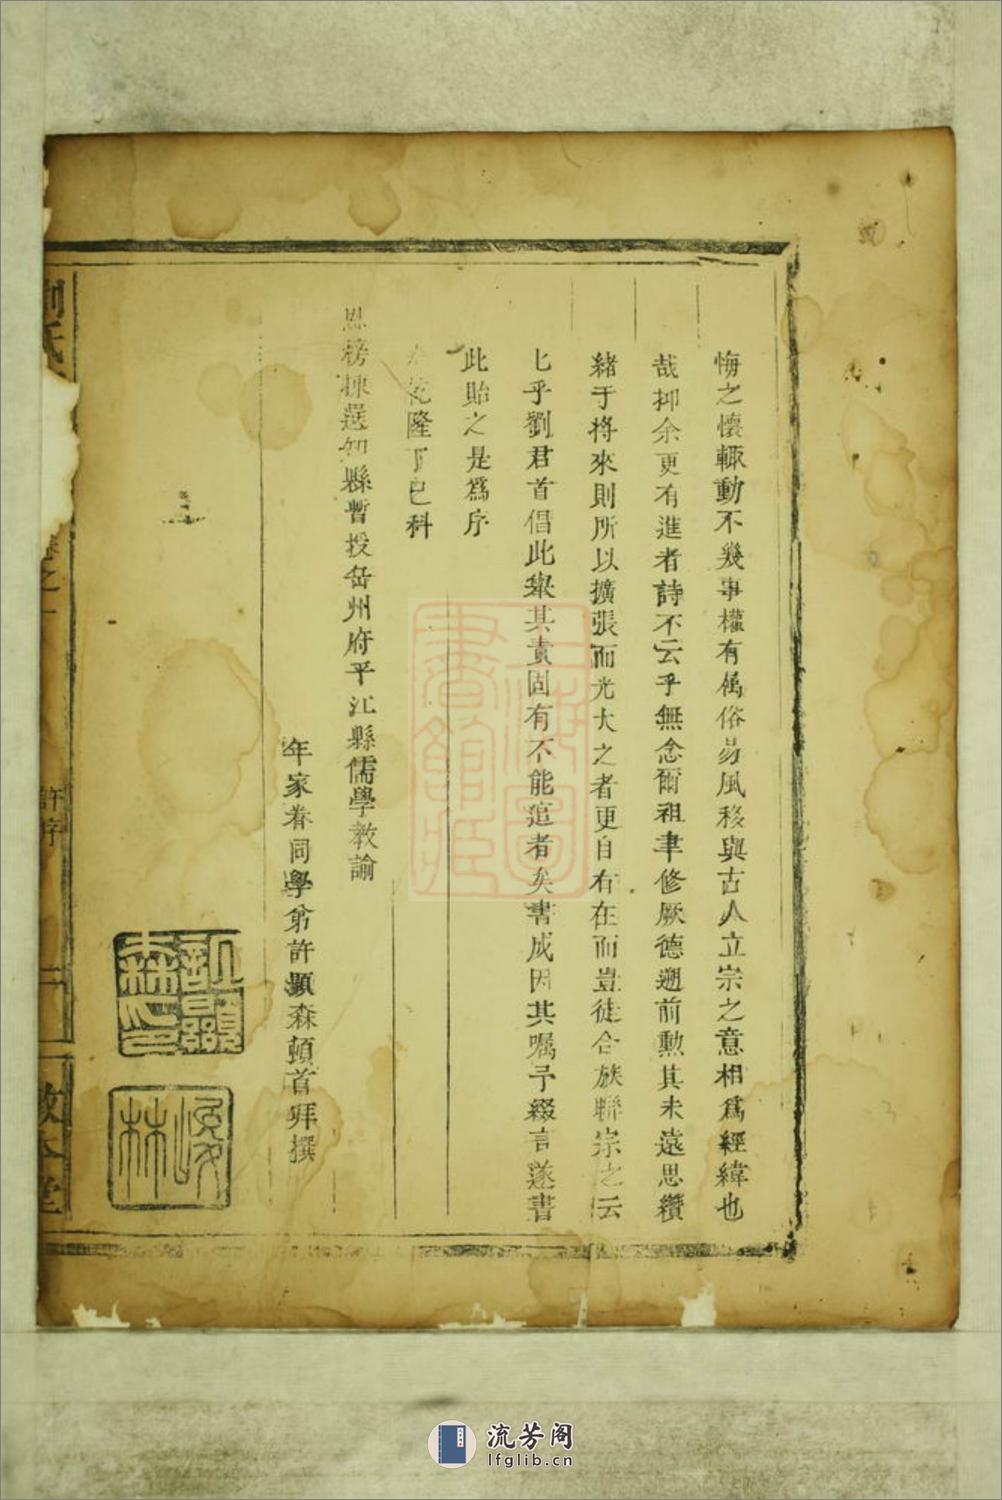 悔之懷輙動不幾事權有属俗易風移與古人立宗之意相爲經緯也
哉抑余更有進者詩不云乎無念爾祖聿修厥德遡前勲其未遠思纘
緒于将來則所以擴張而光大之者更自有在而豈徒合族聯宗之云
乎劉君首倡此舉其責固有不能逭者矣書成因其嘱予綴言遂書
此貽之是爲序
乾隆丁巳科
恩榜揀選知縣暫授岳州府平江縣儒學教諭
年家眷同學弟許顯森頓首拜撰
許顯森印
俊林
劉氏
卷之一
許序
二
敦本堂
上海圖書館藏
流芳阁
lfglib.cn